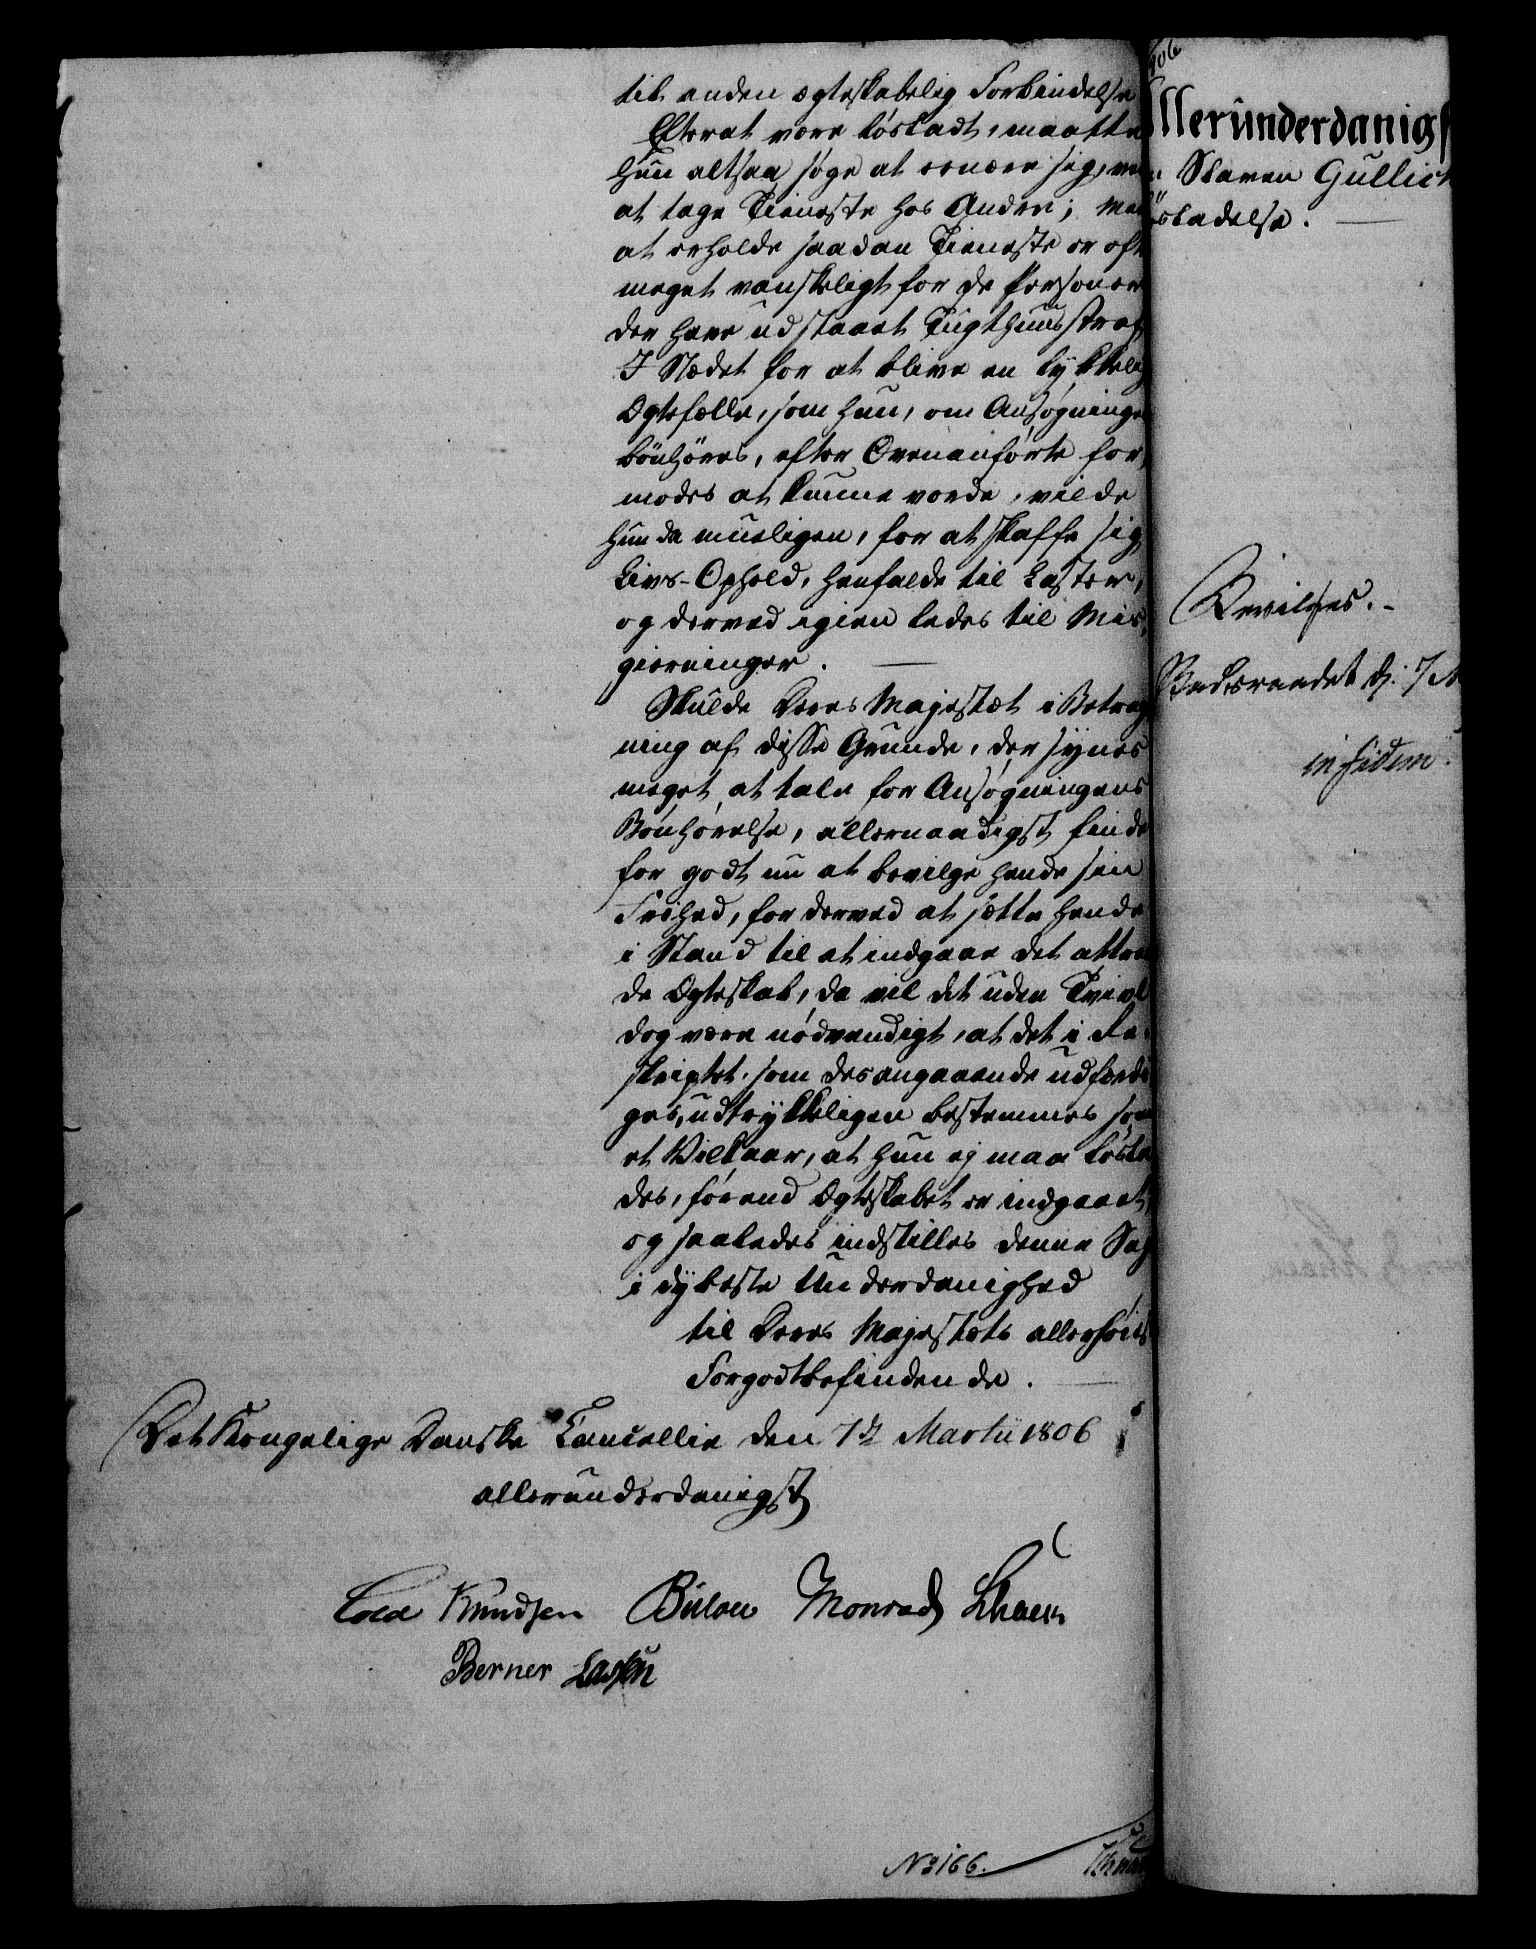 til anden ægteskabelig Forbindelse
Efterat være løsladt, maatte
hun altsaa søge at ernære sig, ved
at tage Tieneste hos Andre; men
at erholde saadan Tieneste er oft
meget vanskeligt for de Personer
der have udstaaet Tugthuusstraf
I Stædet for at blive en lykkelig
Ægtefælle, som hun, om Ansøgningen
bønhøres, efter Ovenanførte for
modes at kunne vorde, vilde
hun da mueligen, for at skaffe sig
Livs-Ophold, henfalde til Laster,
og derved igien ledes til Mis,
gierninger.
Skulde Deres Majestæt i Betrag
ning af disse Grunde, der synes
meget at tale for Ansøgningens
Bønhørelse, allernaadigst finde
for godt nu at bevilge hende sin
Frihed, for derved at sætte hende
i Stand til at indgaae det attraae
de Ægteskab, da vil det uden Tvivl
dog være nødvendigt, at det i Re-
skriptet, som desangaaende udfærdi
ges, udtrykkeligen bestemmes som
et Vilkaar, at hun ej maa løsla
des, førend Ægteskabet er indgaaet,
og saaledes indstilles denne Sag
i dybeste Underdanighed
til Deres Majestæts allerhøist
Forgodtbefindende.
Det Kongelige Danske Cancellie den 7de Martii 1806
allerunderdanigst
Cold Knudsen Bülow Monrad
Berner Lassen
No 166.
llerunderdanigs
Slaven Gullich
øsladelse.
Bevilges.-
in fidem.